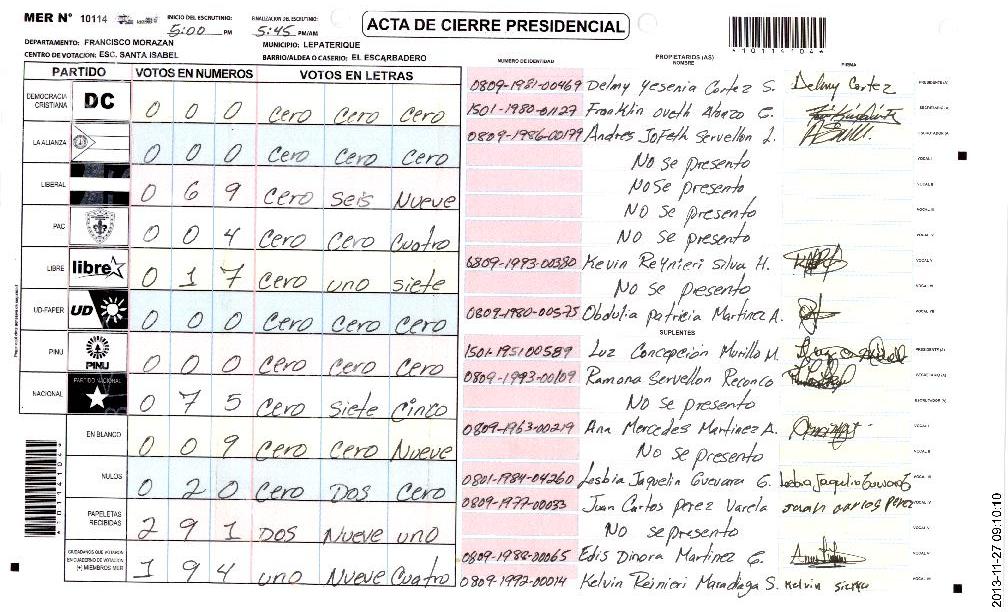 MER Nº 10114 INICIO DEL ESCRUTINIO: 5:00 PM FINALIZACION DEL ESCRUTINIO: 5:45 PM/AM ACTA DE CIERRE PRESIDENCIAL
DEPARTAMENTO: FRANCISCO MORAZAN MUNICIPIO: LEPATERIQUE
CENTRO DE VOTACION: ESC. SANTA ISABEL BARRIO/ALDEA O CASERIO: EL ESCARBADERO
PARTIDO VOTOS EN NUMEROS VOTOS EN LETRAS
DEMOCRACIA CRISTIANA DC 0 0 0 Cero Cero Cero
LA ALIANZA 0 0 0 Cero Cero Cero
LIBERAL 0 6 9 Cero Seis Nueve
PAC 0 0 4 Cero Cero Cuatro
LIBRE libre 0 1 7 Cero uno siete
UD-FAPER UD 0 0 0 Cero Cero Cero
PINU PINU 0 0 0 Cero Cero Cero
NACIONAL PARTIDO NACIONAL 0 7 5 Cero Siete Cinco
EN BLANCO 0 0 9 Cero Cero Nueve
NULOS 0 2 0 Cero Dos Cero
PAPELETAS RECIBIDAS 2 9 1 Dos Nueve uno
CIUDADANOS QUE VOTARON EN CUADERNO DE VOTACION (+) MIEMBROS MER 1 9 4 uno Nueve Cuatro
*10114104*
NUMERO DE IDENTIDAD PROPIETARIOS (AS) NOMBRE FIRMA
0809-1981-00469 Delmy Yesenia Cortez S. Delmy Cortez PRESIDENTE (A)
1501-1980-01129 Franklin oveth Alonzo C. SECRETARIO (A)
0809-1986-00199 Andres Jofeth Servellon L. ESCRUTADOR (A)
No se presento VOCAL I
No se presento VOCAL II
No se presento VOCAL III
No se presento VOCAL IV
0809-1993-00380 Kevin Reynieri Silva H. VOCAL V
No se pesento VOCAL VI
0809-1980-00575 Obdulia patricia Martinez A. VOCAL VII
SUPLENTES
1501-1951 00589 Luz Concepción Murillo M. PRESIDENTE (A)
0809-1993-00109 Ramona Servellon Reconco SECRETARIO (A)
No se presento ESCRUTADOR (A)
0809-1963-00219 Ana Mercedes Martinez A. VOCAL I
No se presento
0801-1984-04260 Lesbia Jaquelin Guevara G. VOCAL III
0809-1977-00033 Juan Carlos perez Varela Juan carlos perez VOCAL IV
No se presento VOCAL V
0809-1988-00065 Edis Dinora Martinez G. VOCAL VI
0809-1992-00014 Kelvin Reinieri Maradiaga S. VOCAL VII
2013-11-27 09:10:10